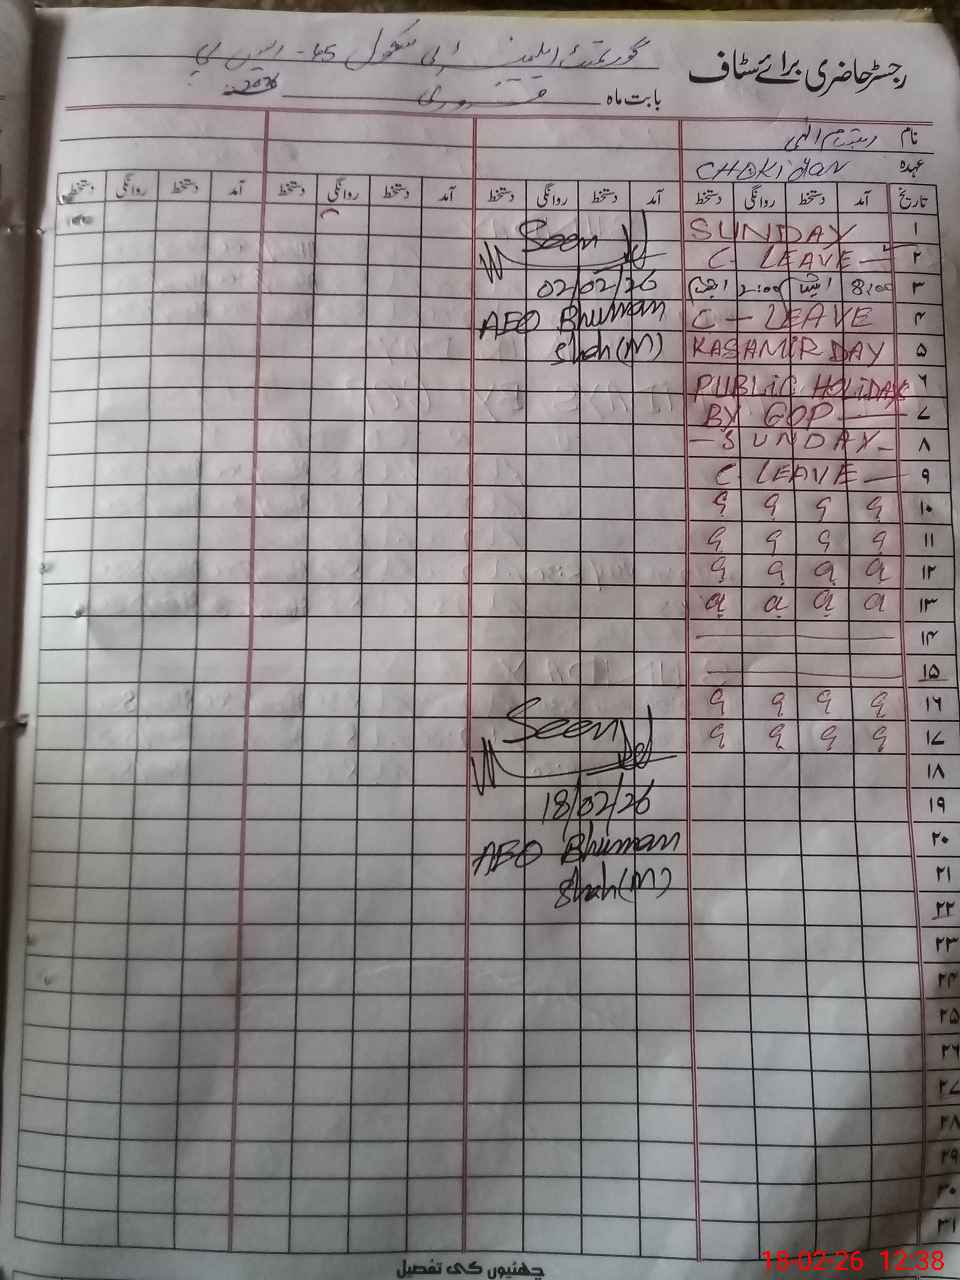 رجسٹر حاضری برائے سٹاف
گورنمنٹ ایلیمنٹری سکول 45-ایس پی
بابت ماہ فروری 2026
نام
عہدہ CHOKidar
تاریخ آمد دستخط روانگی دستخط آمد دستخط روانگی دستخط آمد دستخط روانگی دستخط آمد دستخط روانگی دستخط
۱ SUNDAY
۲ C- LEAVE
۳ 8:00 2:00
۴ C - LEAVE
۵ KASHMIR DAY
۶ PUBLIC HOLIDAYS
۷ BY GOP
۸ SUNDAY
۹ C LEAVE
۱۰ q q q q
۱۱ q q q q
۱۲ q q q q
۱۳ a a a a
۱۴
۱۵
۱۶ q q q q
۱۷ q q q q
۱۸
۱۹
۲۰
۲۱
۲۲
۲۳
۲۴
۲۵
۲۶
۲۷
۲۸
۲۹
۳۰
۳۱
Seen
02/02/26
AEO Bhuman
Shah(M)
Seen
18/02/26
AEO Bhuman
Shah(M)
چھٹیوں کی تفصیل
18-02-26 12:38